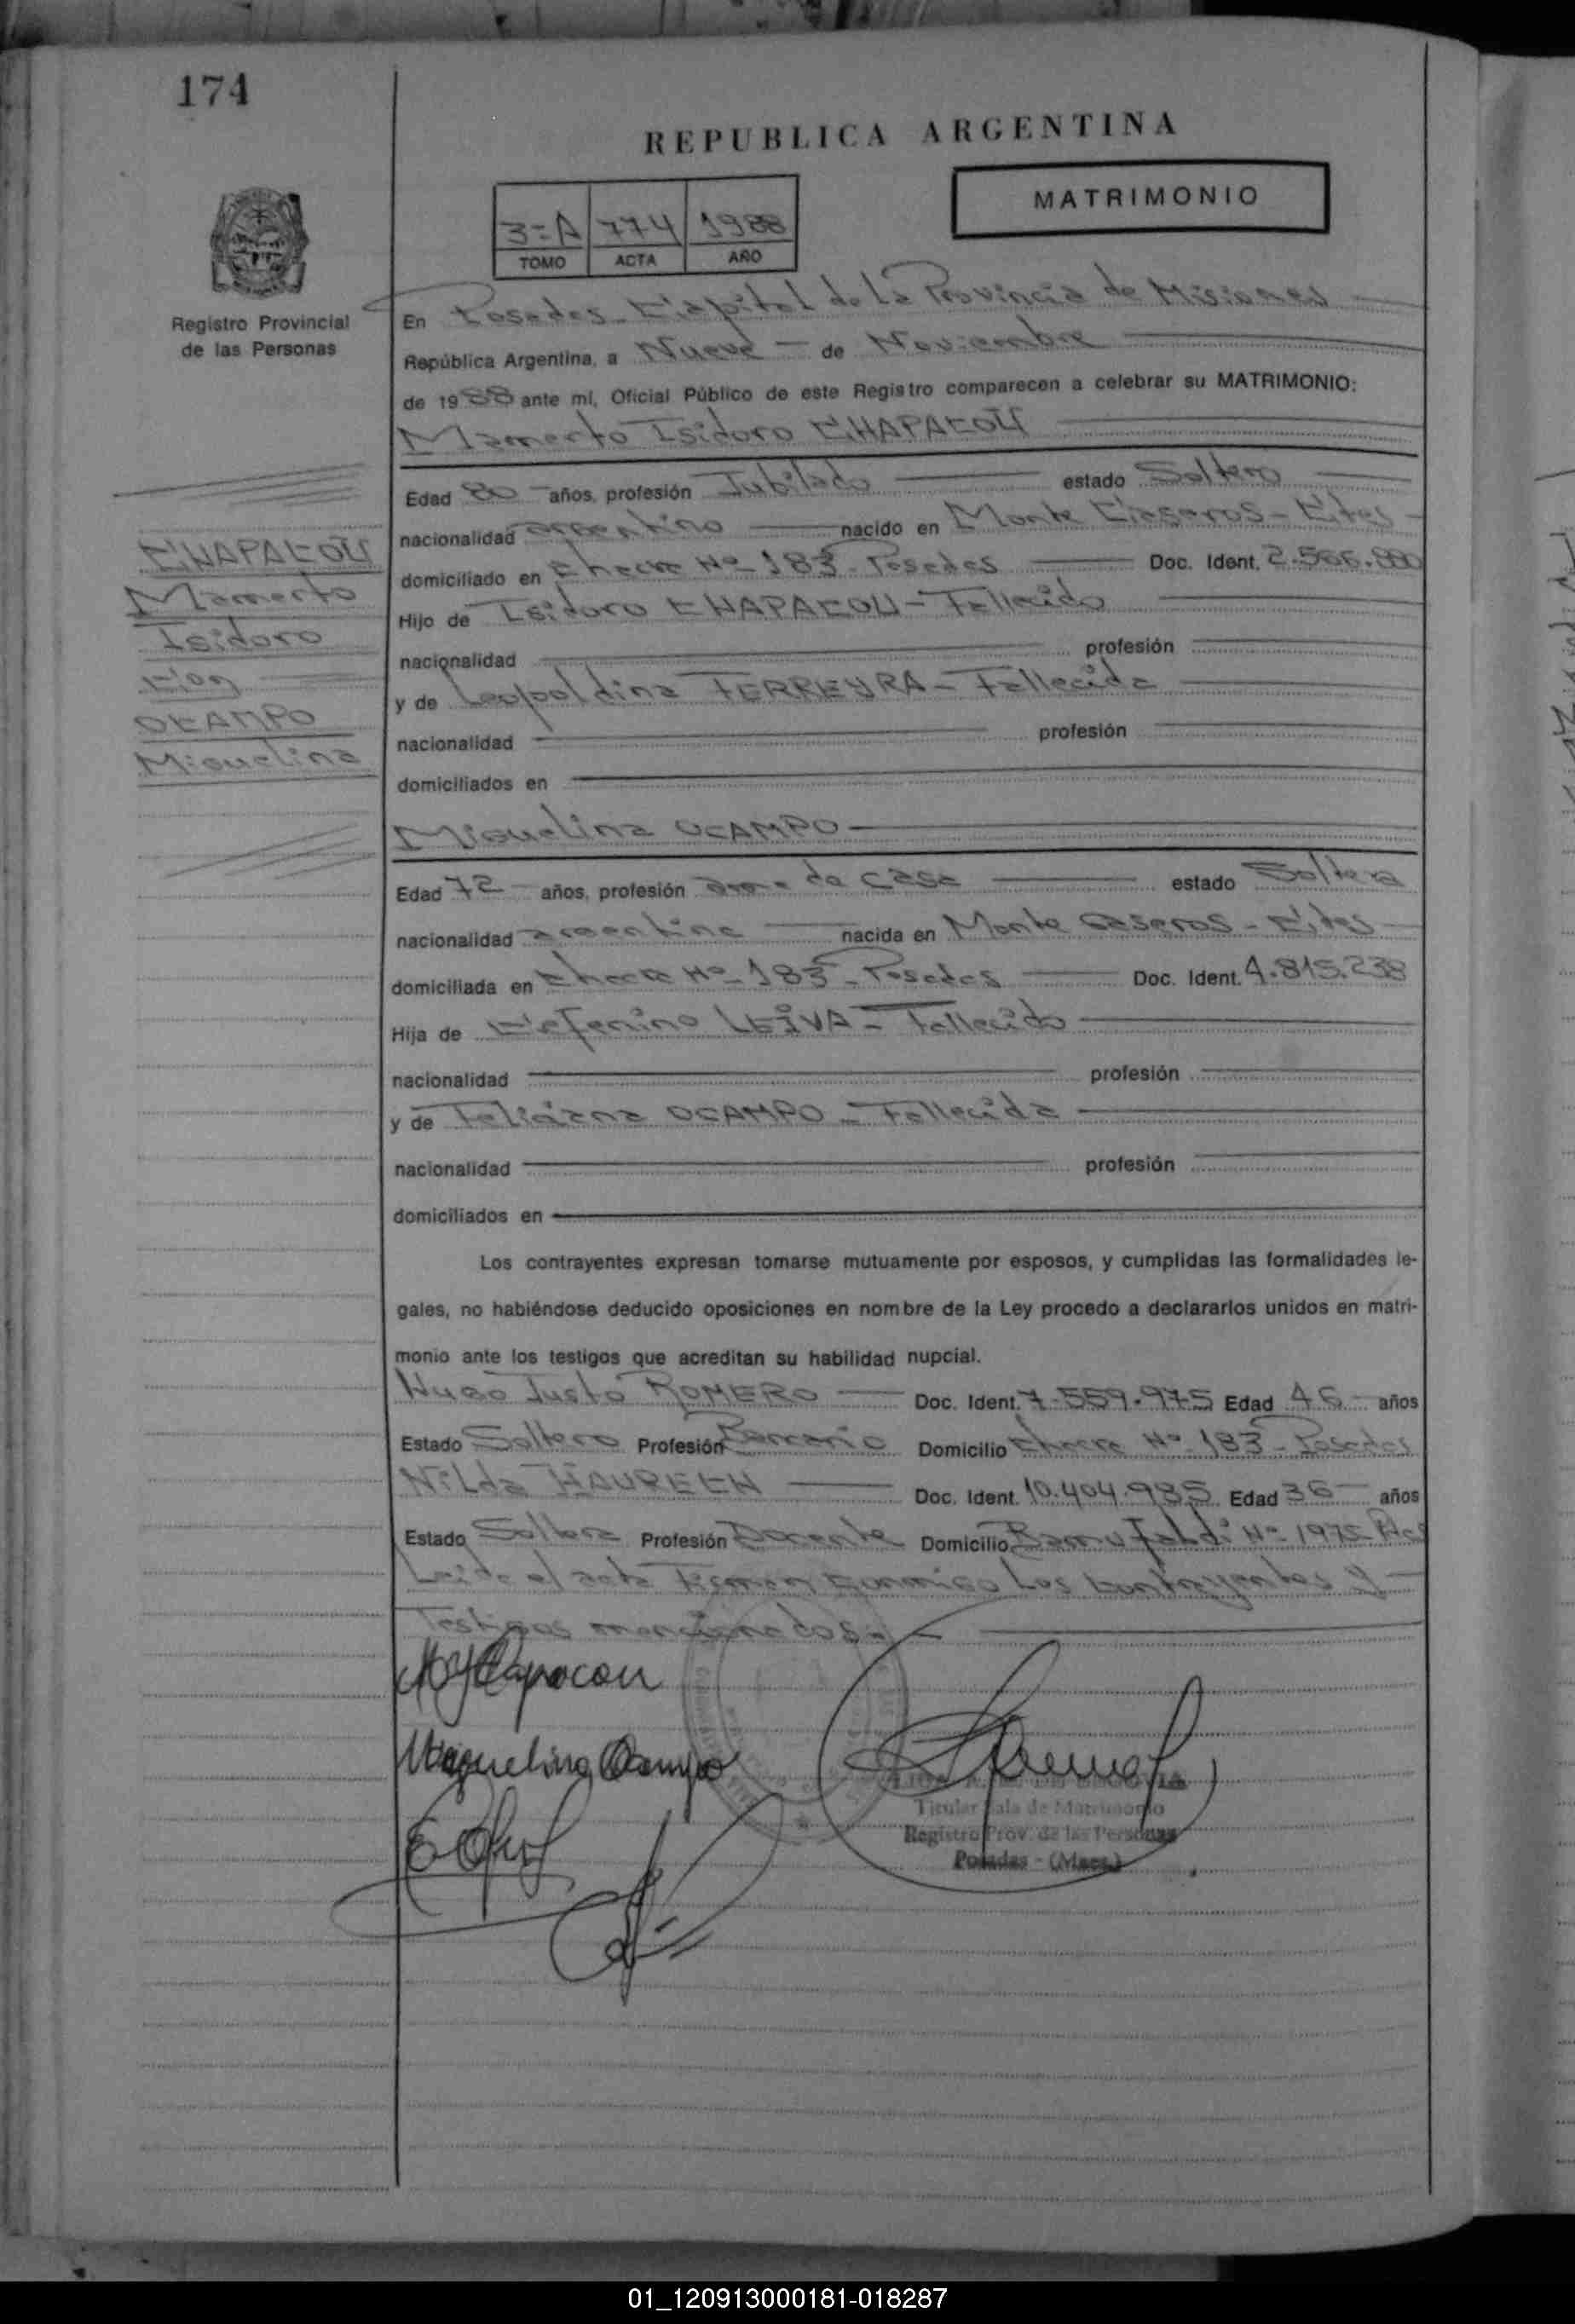 174
REPUBLICA ARGENTINA
MATRIMONIO
3=A 774 1988
TOMO ACTA AÑO
Registro Provincial
de las Personas
En Posadas Capital de la Provincia de Misiones
República Argentina, a Nueve de Noviembre
de 1988 ante mí, Oficial Público de este Registro comparecen a celebrar su MATRIMONIO:
Mamerto Isidoro CHAPACOU
Edad 80 años, profesión Jubilado estado Soltero
nacionalidad argentino nacido en Monte Caseros - Ctes
domiciliado en Chacra Nº 183 - Posadas Doc. Ident. 2.566.880
Hijo de Isidoro CHAPACOU - Fallecido
nacionalidad profesión
y de Leopoldina FERREYRA - Fallecida
nacionalidad profesión
domiciliados en
CHAPACOU
Mamerto
Isidoro
Con
OCAMPO
Miguelina
Miguelina OCAMPO
Edad 72 años, profesión ama de casa estado Soltera
nacionalidad argentina nacida en Monte Caseros - Ctes
domiciliada en Chacra Nº 183 - Posadas Doc. Ident. 4.815.238
Hija de Ceferino LEIVA - Fallecido
nacionalidad profesión
y de Feliciana OCAMPO - Fallecida
nacionalidad profesión
domiciliados en
Los contrayentes expresan tomarse mutuamente por esposos, y cumplidas las formalidades le-
gales, no habiéndose deducido oposiciones en nombre de la Ley procedo a declararlos unidos en matri-
monio ante los testigos que acreditan su habilidad nupcial.
Hugo Justo ROMERO Doc. Ident. 7.559.975 Edad 46 años
Estado Soltero Profesión Bancario Domicilio Chacra Nº 183 - Posadas
Nilda Doc. Ident. 10.404.985 Edad 36 años
Estado Soltera Profesión Docente Domicilio Nº 1975
Leida el acta Firman Conmigo Los Contrayentes y
Testigos mencionados.
Chapacou
Miguelina Ocampo
Titular Sala de Matrimonio
Registro Prov. de las Personas
Posadas - (Mnes.)
01_120913000181-018287